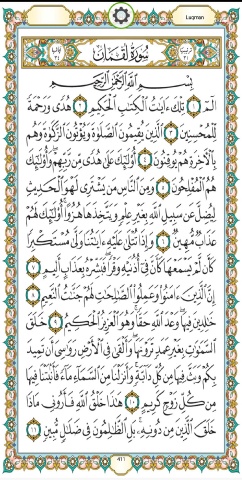 Luqman
سُورَةُ لُقْمَانَ
بِسْمِ اللَّهِ الرَّحْمَٰنِ الرَّحِيمِ
الٓمٓ ١ تِلْكَ ءَايَٰتُ الْكِتَٰبِ الْحَكِيمِ ٢ هُدًى وَرَحْمَةً
لِّلْمُحْسِنِينَ ٣ الَّذِينَ يُقِيمُونَ الصَّلَوٰةَ وَيُؤْتُونَ الزَّكَوٰةَ وَهُم
بِالْءَاخِرَةِ هُمْ يُوقِنُونَ ٤ أُولَٰٓئِكَ عَلَىٰ هُدًى مِّن رَّبِّهِمْ وَأُولَٰٓئِكَ
هُمُ الْمُفْلِحُونَ ٥ وَمِنَ النَّاسِ مَن يَشْتَرِى لَهْوَ الْحَدِيثِ
لِيُضِلَّ عَن سَبِيلِ اللَّهِ بِغَيْرِ عِلْمٍ وَيَتَّخِذَهَا هُزُوًا أُولَٰٓئِكَ لَهُمْ
عَذَابٌ مُّهِينٌ ٦ وَإِذَا تُتْلَىٰ عَلَيْهِ ءَايَٰتُنَا وَلَّىٰ مُسْتَكْبِرًا
كَأَن لَّمْ يَسْمَعْهَا كَأَنَّ فِىٓ أُذُنَيْهِ وَقْرًا فَبَشِّرْهُ بِعَذَابٍ أَلِيمٍ ٧
إِنَّ الَّذِينَ ءَامَنُوا وَعَمِلُوا الصَّٰلِحَٰتِ لَهُمْ جَنَّٰتُ النَّعِيمِ ٨
خَٰلِدِينَ فِيهَا وَعْدَ اللَّهِ حَقًّا وَهُوَ الْعَزِيزُ الْحَكِيمُ ٩ خَلَقَ
السَّمَٰوَٰتِ بِغَيْرِ عَمَدٍ تَرَوْنَهَا وَأَلْقَىٰ فِى الْأَرْضِ رَوَٰسِىَ أَن تَمِيدَ
بِكُمْ وَبَثَّ فِيهَا مِن كُلِّ دَآبَّةٍ وَأَنزَلْنَا مِنَ السَّمَآءِ مَآءً فَأَنۢبَتْنَا فِيهَا
مِن كُلِّ زَوْجٍ كَرِيمٍ ١٠ هَٰذَا خَلْقُ اللَّهِ فَأَرُونِى مَاذَا
خَلَقَ الَّذِينَ مِن دُونِهِ بَلِ الظَّٰلِمُونَ فِى ضَلَٰلٍ مُّبِينٍ ١١
411